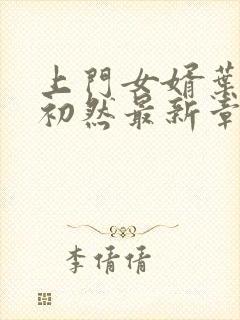 上門女婿葉
初然最新章
李倩倩